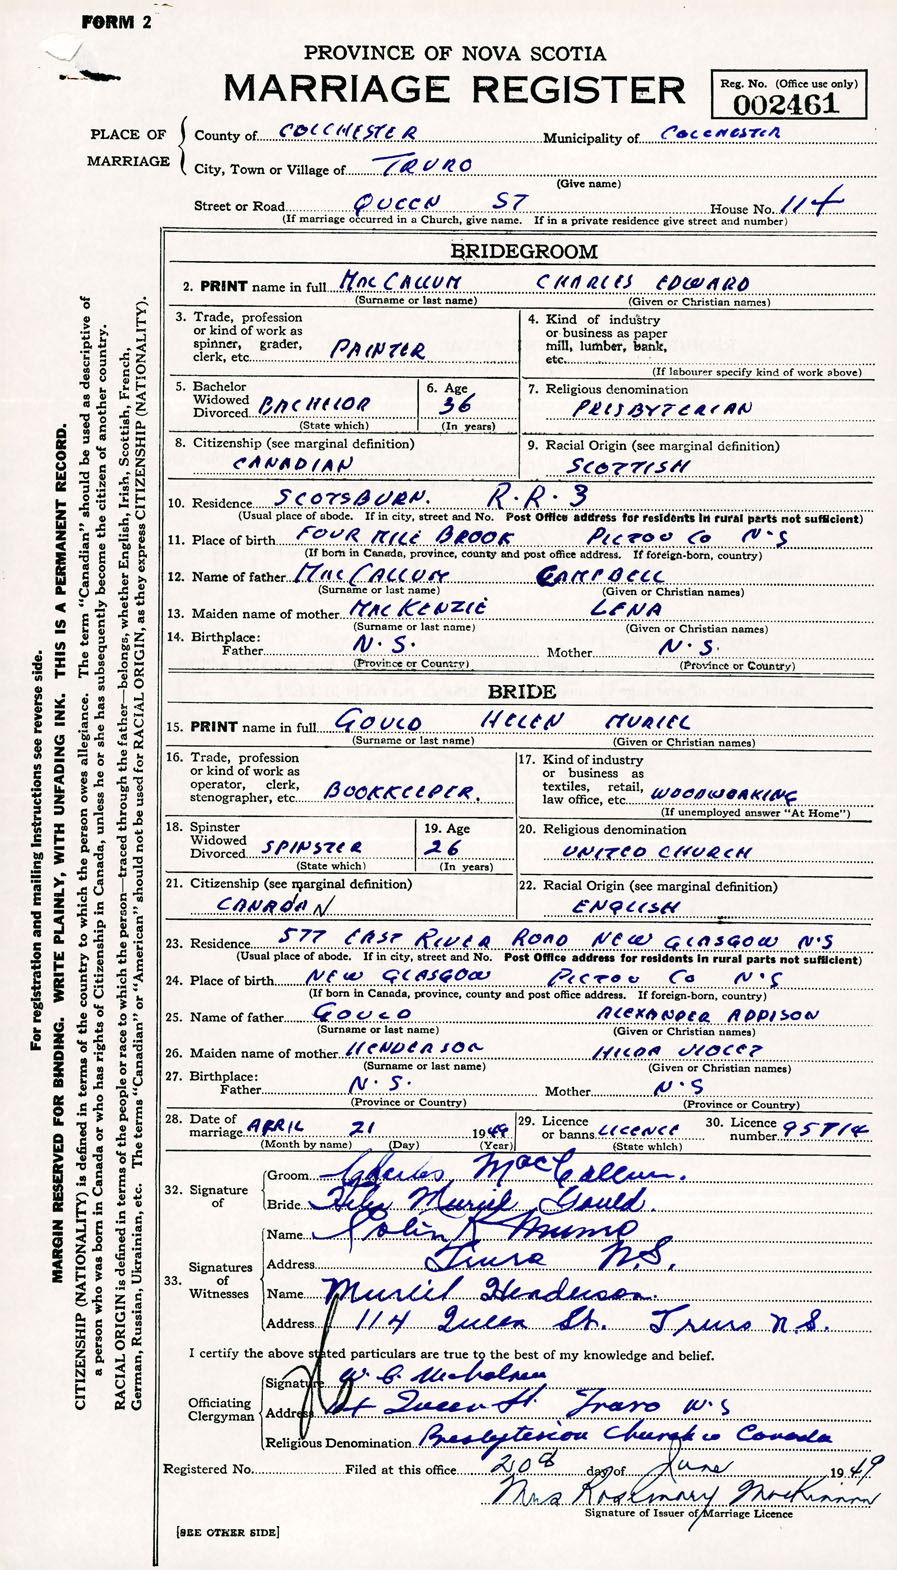 FORM 2
PROVINCE OF NOVA SCOTIA
MARRIAGE REGISTER
Reg. No. (Office use only)
002461
PLACE OF MARRIAGE
County of COLCHESTER Municipality of COLCHESTER
City, Town or Village of TRURO
(Give name)
Street or Road QUEEN ST House No. 114
(If marriage occurred in a Church, give name. If in a private residence give street and number)
BRIDEGROOM
2. PRINT name in full MacCALLUM CHARLES EDWARD
(Surname or last name) (Given or Christian names)
3. Trade, profession
or kind of work as
spinner, grader,
clerk, etc. PAINTER
4. Kind of industry
or business as paper
mill, lumber, bank,
etc.
(If labourer specify kind of work above)
5. Bachelor
Widowed
Divorced BACHELOR
(State which)
6. Age
36
(In years)
7. Religious denomination
PRESBYTERIAN
8. Citizenship (see marginal definition)
CANADIAN
9. Racial Origin (see marginal definition)
SCOTTISH
10. Residence SCOTSBURN. R.R.3
(Usual place of abode. If in city, street and No. Post Office address for residents in rural parts not sufficient)
11. Place of birth FOUR MILE BROOK PICTOU CO N.S
(If born in Canada, province, county and post office address. If foreign-born, country)
12. Name of father MacCALLUM CAMPBELL
(Surname or last name) (Given or Christian names)
13. Maiden name of mother MacKENZIE LENA
(Surname or last name) (Given or Christian names)
14. Birthplace:
Father N.S. Mother N.S.
(Province or Country) (Province or Country)
BRIDE
15. PRINT name in full GOULD HELEN MURIEL
(Surname or last name) (Given or Christian names)
16. Trade, profession
or kind of work as
operator, clerk,
stenographer, etc. BOOKKEEPER.
17. Kind of industry
or business as
textiles, retail,
law office, etc. WOODWORKING
(If unemployed answer "At Home")
18. Spinster
Widowed
Divorced SPINSTER
(State which)
19. Age
26
(In years)
20. Religious denomination
UNITED CHURCH
21. Citizenship (see marginal definition)
CANADIAN
22. Racial Origin (see marginal definition)
ENGLISH
23. Residence 577 EAST RIVER ROAD NEW GLASGOW N.S
(Usual place of abode. If in city, street and No. Post Office address for residents in rural parts not sufficient)
24. Place of birth NEW GLASGOW PICTOU CO N.S
(If born in Canada, province, county and post office address. If foreign-born, country)
25. Name of father GOULD ALEXANDER ADDISON
(Surname or last name) (Given or Christian names)
26. Maiden name of mother HENDERSON HILDA VIOLET
(Surname or last name) (Given or Christian names)
27. Birthplace:
Father N.S. Mother N.S
(Province or Country) (Province or Country)
28. Date of
marriage APRIL 21 1949
(Month by name) (Day) (Year)
29. Licence
or banns LICENCE
(State which)
30. Licence
number 95714
32. Signature of
Groom Charles MacCallum.
Bride Helen Muriel Gould.
33. Signatures of Witnesses
Name Munro
Address Truro N.S.
Name Muriel Henderson.
Address 114 Queen St. Truro N.S.
I certify the above stated particulars are true to the best of my knowledge and belief.
Officiating Clergyman
Signature W. C. Nicholson
Address Queen St. Truro N.S
Religious Denomination Presbyterian Church in Canada
Registered No. Filed at this office 20 day of June 1949
Mrs Rosemary MacKinnon
Signature of Issuer of Marriage Licence
[SEE OTHER SIDE]
For registration and mailing instructions see reverse side.
MARGIN RESERVED FOR BINDING. WRITE PLAINLY, WITH UNFADING INK. THIS IS A PERMANENT RECORD.
CITIZENSHIP (NATIONALITY) is defined in terms of the country to which the person owes allegiance. The term "Canadian" should be used as descriptive of
a person who was born in Canada or who has rights of Citizenship in Canada, unless he or she has subsequently become the citizen of another country.
RACIAL ORIGIN is defined in terms of the people or race to which the person—traced through the father—belongs, whether English, Irish, Scottish, French,
German, Russian, Ukrainian, etc. The terms "Canadian" or "American" should not be used for RACIAL ORIGIN, as they express CITIZENSHIP (NATIONALITY).